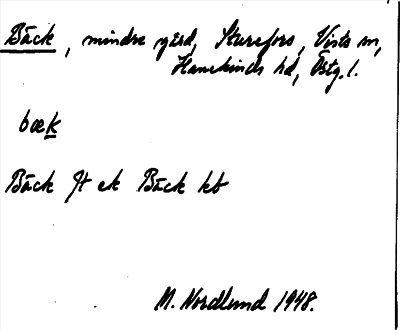 Bäck, mindre gård, Sturefors, Vists sn,
Hanekinds hd, Östg. l.
bœk
Bäck Jt ek Bäck kt
M. Nordlund 1948.